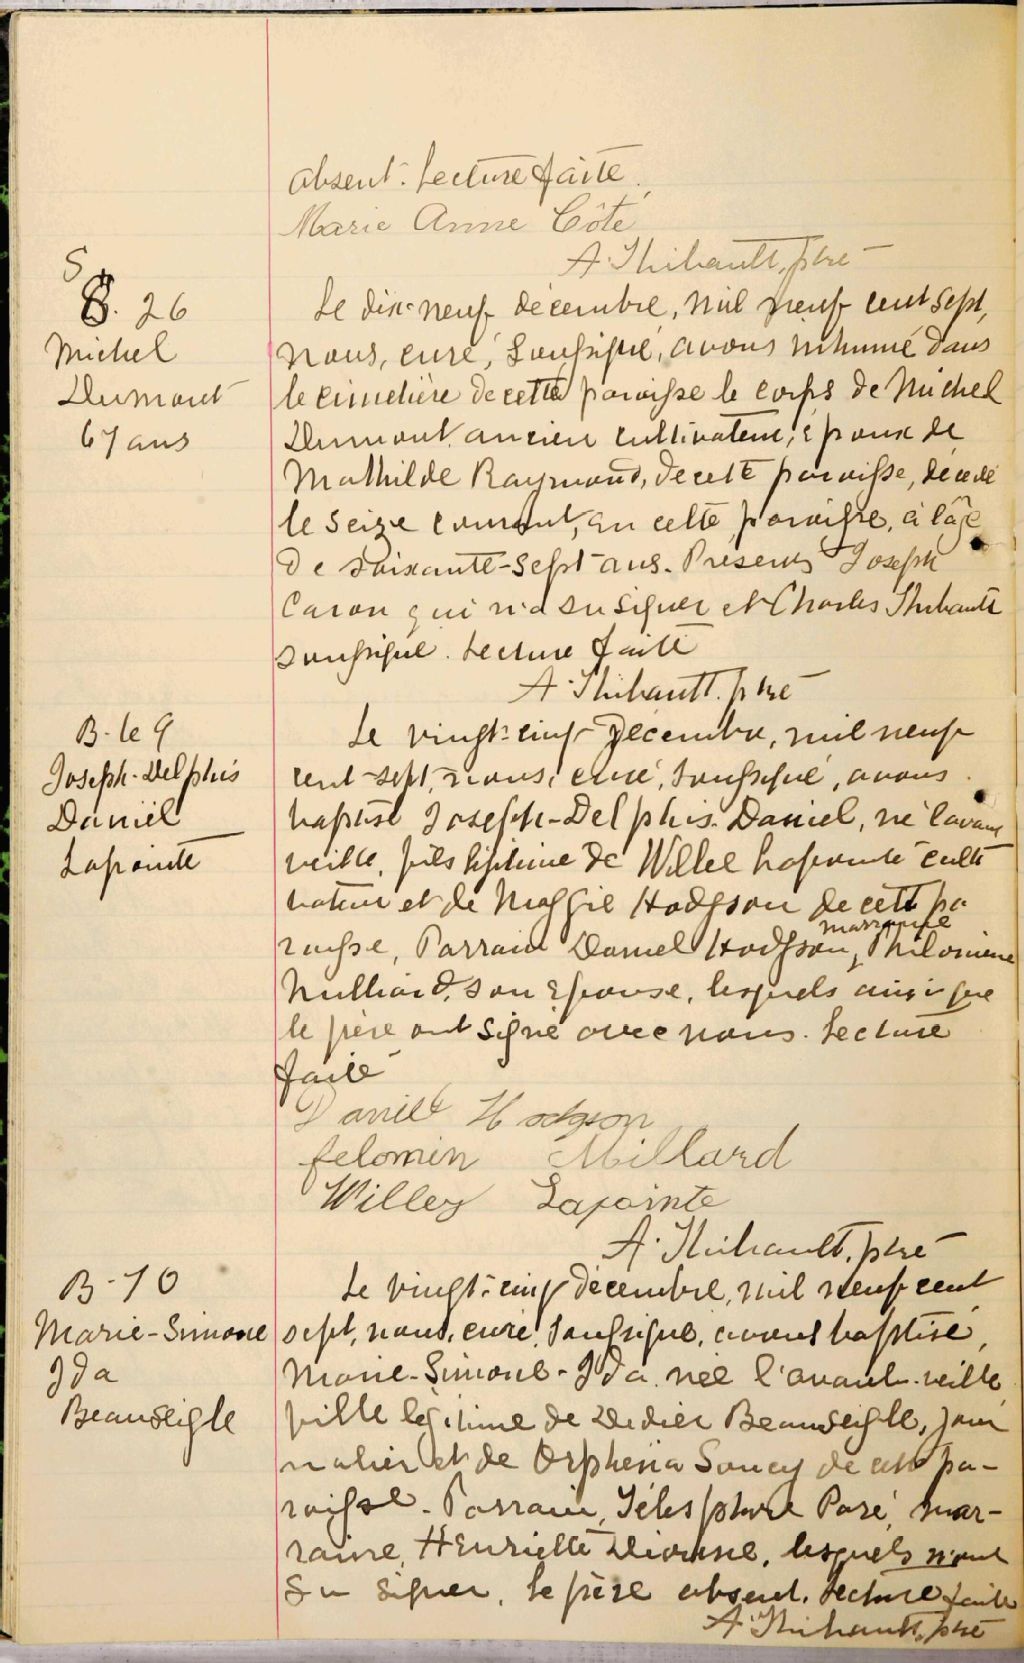 absent. Lecture faite.
Marie Anne Côté
A. Thibault, ptre
S. 26
Michel
Dumont
67 ans
Le dix-neuf décembre, mil neuf cent sept,
nous, curé, soussigné, avons inhumé dans
le cimetière de cette paroisse le corps de Michel
Dumont ancien cultivateur, époux de
Mathilde Raymond, de cette paroisse, décédé
le seize courant, en cette paroisse, à l'âge
de soixante-sept ans. Présents Joseph
Caron qui n'a su signer et Charles Thibault
soussigné. Lecture faite
A. Thibault. ptre
B. le 9
Joseph-Delphis
Daniel
Lapointe
Le vingt-cinq décembre, mil neuf
cent-sept, nous, curé, soussigné, avons
baptisé Joseph-Delphis-Daniel, né l'avant
veille, fils légitime de Lapointe culti
vateur et de Maggie Hodgson de cette pa
roisse, Parrain Daniel Hodgson, marraine Philomène
son épouse, lesquels ainsi que
le père ont signé avec nous. Lecture
faite
Daniel Hodgson
felomin Millard
Willey Lapointe
A. Thibault, ptre
B-10
Marie-Simone
Ida
Beauseigle
Le vingt-cinq décembre, mil neuf cent
sept, nous, curé, soussigné, avons baptisé,
Marie-Simone-Ida née l'avant-veille
fille légitime de Didier Beauseigle, jour
nalier et de Orphésia Soucy de cette pa-
roisse. Parrain, Télesphore Paré, mar-
raine, Henriette Dionne, lesquels n'ont
su signer. Le père absent. Lecture faite
A. Thibault, ptre